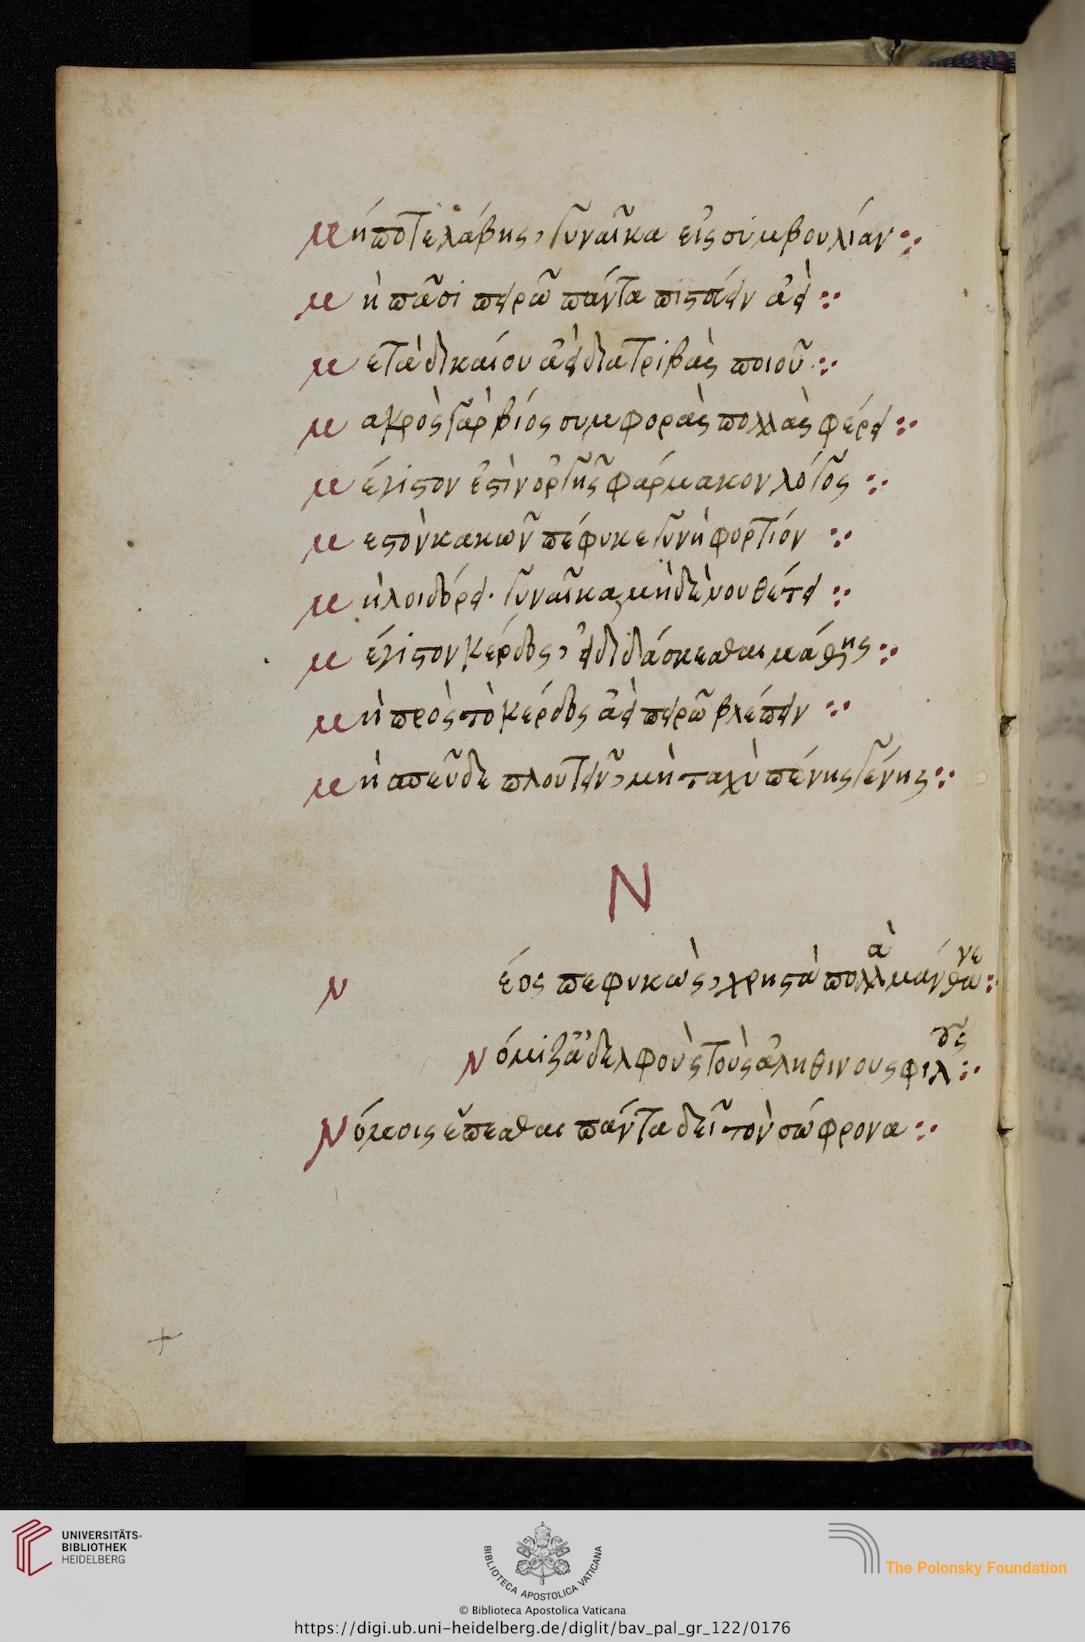 μήποτε λάβῃς, γυναῖκα εἰς συμβουλίαν
μὴ πᾶσι πειρῶ πάντα πιστεύειν ἀεὶ
μετὰ δικαίου ἀεὶ διατριβὰς ποιοῦ
μακρὸς γὰρ βίος συμφορὰς πολλὰς φέρει
μέγιστον ἐστὶν ὀργῆς φάρμακον λόγος
μεστὸν κακῶν πέφυκε γυνὴ φορτίον
μὴ λοιδόρει. γυναῖκα, μηδὲ νουθέτει
μέγιστον κέρδος, εἰ διδάσκεσθαι μάθῃς
μὴ πρὸς τὸ κέρδος ἀεὶ πειρῶ βλέπειν
μὴ σπεῦδε πλουτεῖν, μὴ ταχὺ πένης γένῃς
Ν
νέος πεφυκὼς, χρηστὰ πολλὰ μάνθανε
Νόμιζ' ἀδελφοὺς τοὺς ἀληθινους φίλους
Νόμοις ἕπεσθαι πάντα δεῖ τὸν σώφρονα
UNIVERSITÄTS-
BIBLIOTHEK
HEIDELBERG
BIBLIOTECA APOSTOLICA VATICANA
The Polonsky Foundation
© Biblioteca Apostolica Vaticana
https://digi.ub.uni-heidelberg.de/diglit/bav_pal_gr_122/0176